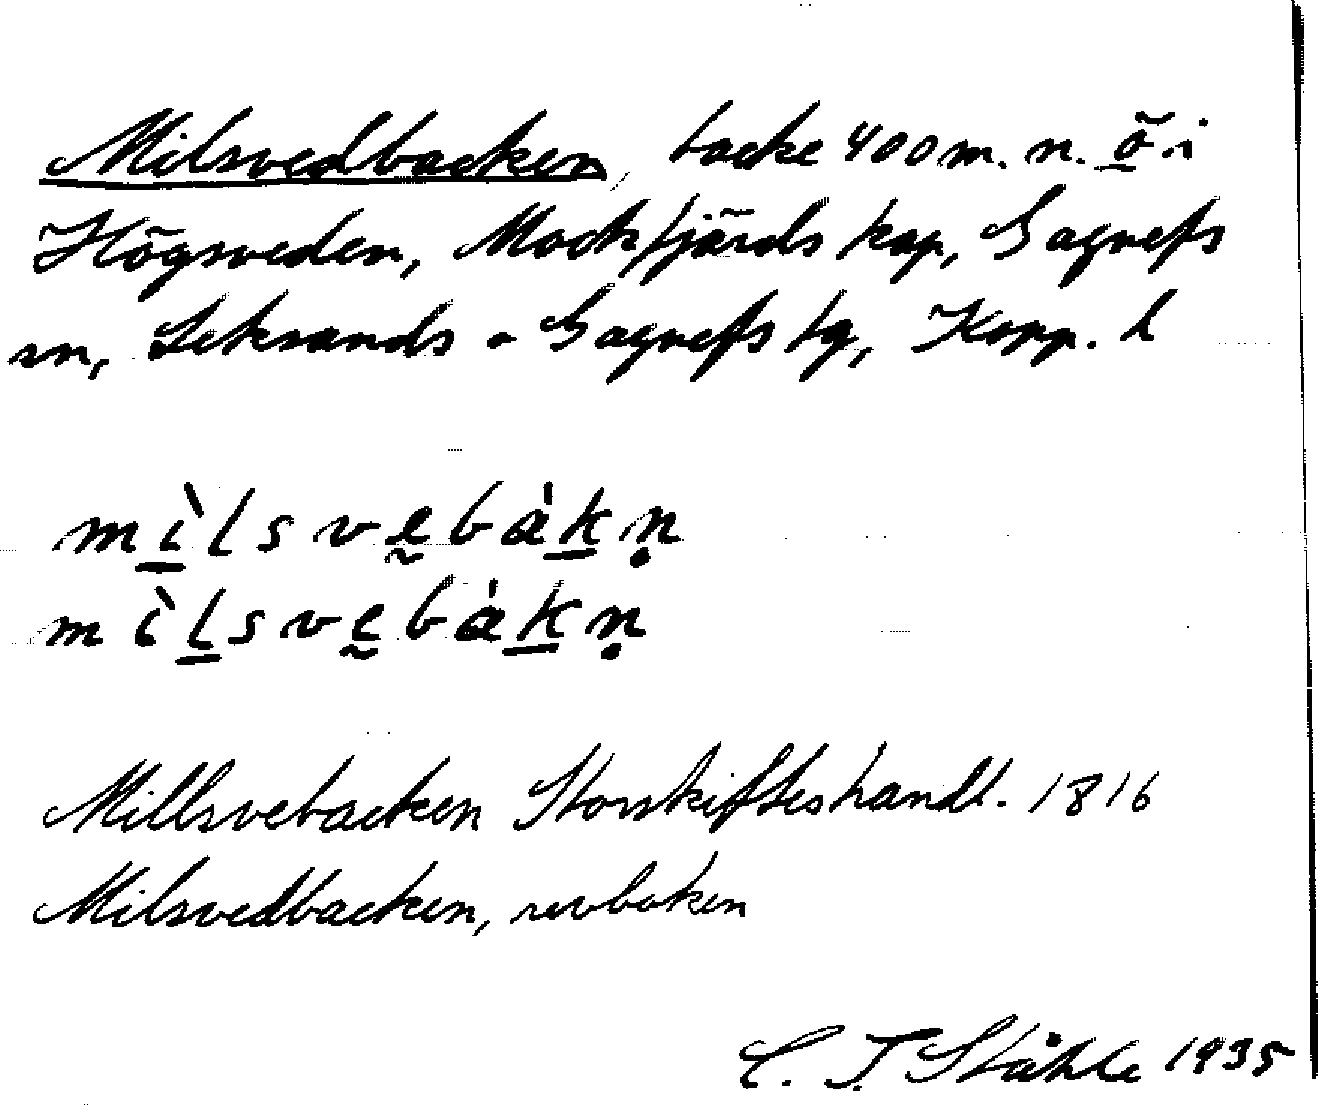 Milsvedbacken, backe 400 m. n. ö i
Högsveden, Mockfjärds kap, Gagnefs
sn, Leksands o Gagnefs tg, Kopp. l
mìlsvḛbàkṇ
mìlsvḛbàkṇ
Millsvebacken Storskifteshandl. 1816
Milsvedbacken, revboken
C. I. Ståhle 1935